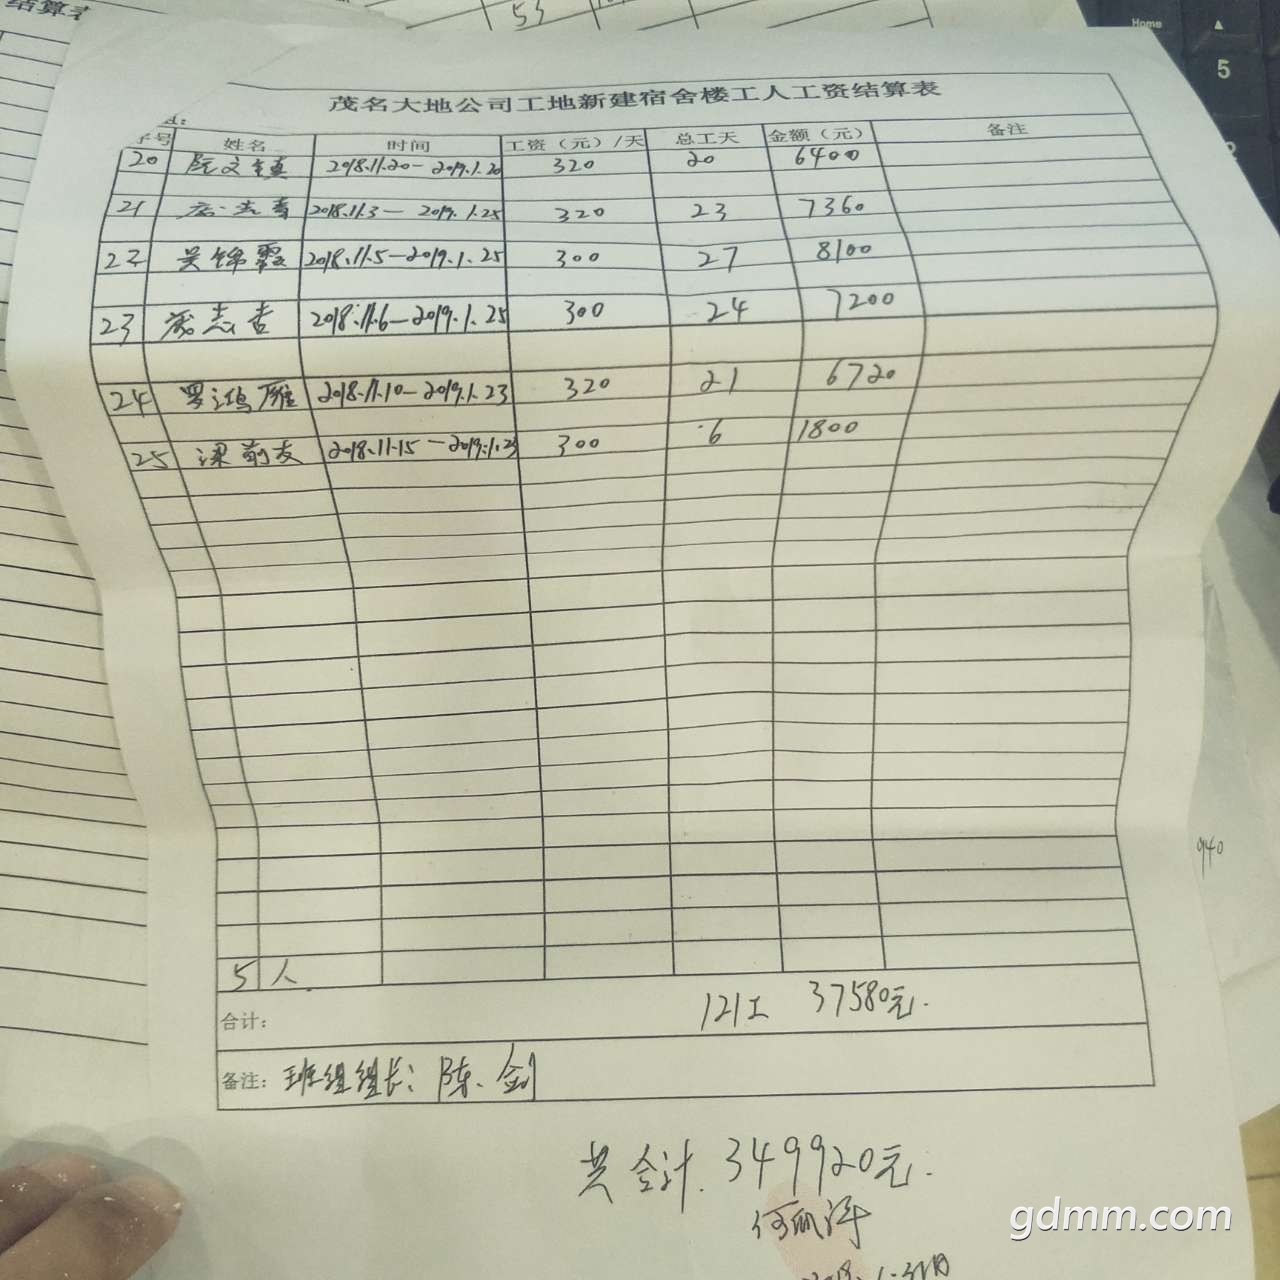 结算表
53
Home
5
茂名大地公司工地新建宿舍楼工人工资结算表
序号 姓名 时间 工资（元）/天 总工天 金额（元） 备注
20 阮文镇 2018.11.20-2019.1.20 320 20 6400
21 2018.11.3-2019.1.25 320 23 7360
22 吴锦霞 2018.11.5-2019.1.25 300 27 8100
23 志吉 2018.11.6-2019.1.25 300 24 7200
24 罗鸿雁 2018.11.10-2019.1.23 320 21 6720
25 梁前友 2018.11.15-2019.1.23 300 6 1800
5人
合计： 121工 37580元.
备注：班组组长：陈剑
940
共合计.349920元.
gdmm.com